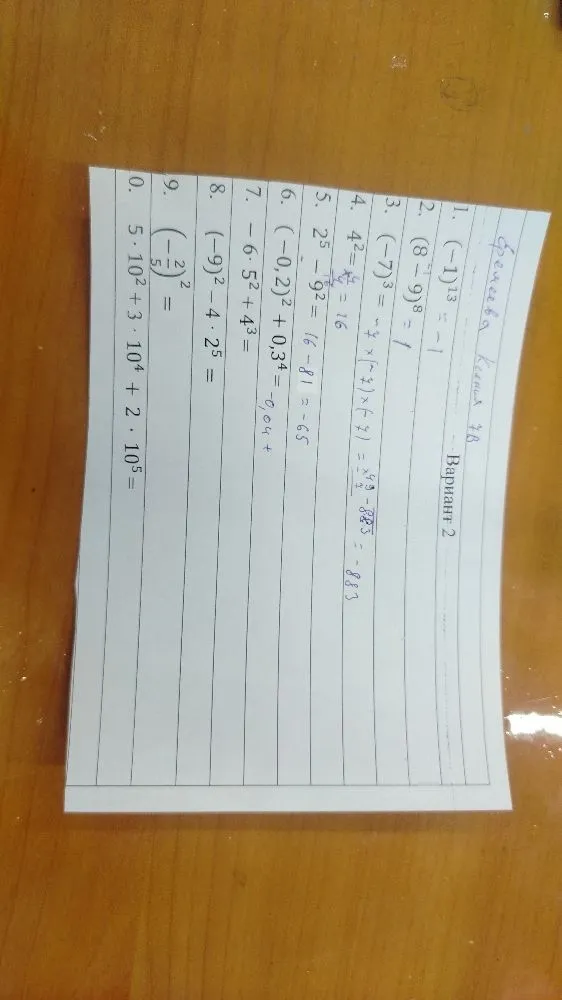 Ксения 7В
Вариант 2
1. (−1)¹³ = −1
2. (8 − 9)⁸ = 1
3. (−7)³ = −7×(−7)×(−7) = ×49 −7 −883 = −883
4. 4² = ×4 4 = 16
5. 2⁵ − 9² = 16 − 81 = −65
6. (−0,2)² + 0,3⁴ = −0,04 +
7. −6 · 5² + 4³ =
8. (−9)² − 4 · 2⁵ =
9. (−2/5)² =
0. 5 · 10² + 3 · 10⁴ + 2 · 10⁵ =